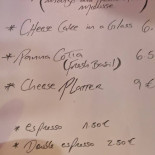 * Cheese Cake in a Glass 6.
* Panna Cotta 6.5
(fresh Basil)
* Cheese Platter 9 €
* Espresso 1.80€
* Double espresso 2.80€